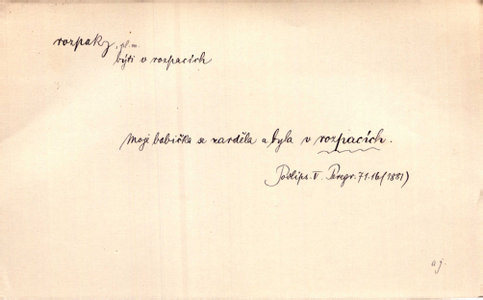 rozpaky, pl. m.
býti v rozpacích
Moje babička se zarděla a byla v rozpacích.
Podlips. V. Peregr. 71.16 (1881)
aj.